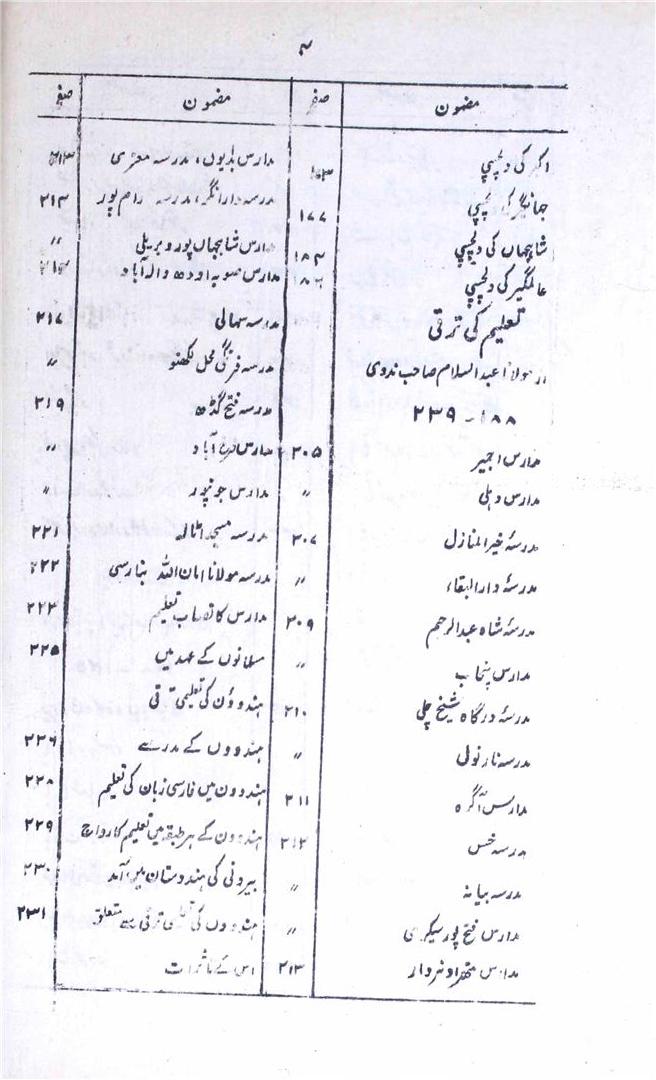 ۴
مضمون صفحہ
اکبر کی دلچسپی
جہانگیر کی دلچسپی ۱۷۷
شاہجہاں کی دلچسپی ۱۸۴
عالمگیر کی دلچسپی ۱۸۶
تعلیم کی ترقی
از مولانا عبدالسلام صاحب ندوی
۱۸۸ - ۲۳۹
مدارس اجمیر ۲۰۵
مدارس دہلی 〃
مدرسۂ خیر المنازل ۲۰۷
مدرسۂ دارالبقاء 〃
مدرسۂ شاہ عبدالرحیم ۲۰۹
مدارس پنجاب 〃
مدرسۂ درگاہ شیخ چلی ۲۱۰
مدرسہ نارنولی 〃
مدارس آگرہ ۲۱۱
مدرسہ خس ۲۱۲
مدرسہ بیانہ 〃
مدارس فتح پور سیکری 〃
مدارس متھرا و نردار ۲۱۳
مضمون صفحہ
مدارس بدایوں، مدرسہ معزی ۲۱۳
مدرسہ دارانگر، مدرسہ رام پور ۲۱۴
مدارس شاہجہاں پور و بریلی 〃
مدارس صوبہ اودھ و الہ آباد ۲۱۶
مدرسہ سہالی ۲۱۷
مدرسہ فرنگی محل لکھنو 〃
مدرسہ فتح گڈھ ۲۱۹
مدارس فرخ آباد 〃
مدارس جونپور 〃
مدرسہ مسجد اٹالہ ۲۲۱
مدرسہ مولانا امان اللہ بنارسی ۲۲۲
مدارس کا نصاب تعلیم ۲۲۳
مسلمانوں کے عہد میں ۲۲۵
ہندوؤں کی تعلیمی ترقی
ہندووں کے مدرسے ۲۲۶
ہندوون میں فارسی زبان کی تعلیم ۲۲۸
ہندوون کے ہر طبقہ میں تعلیم کا رواج ۲۲۹
بیرونی کی ہندوستان میں آمد ۲۳۰
ہندووں کی تعلیمی ترقی سے متعلق ۲۳۱
اس کے تاثرات